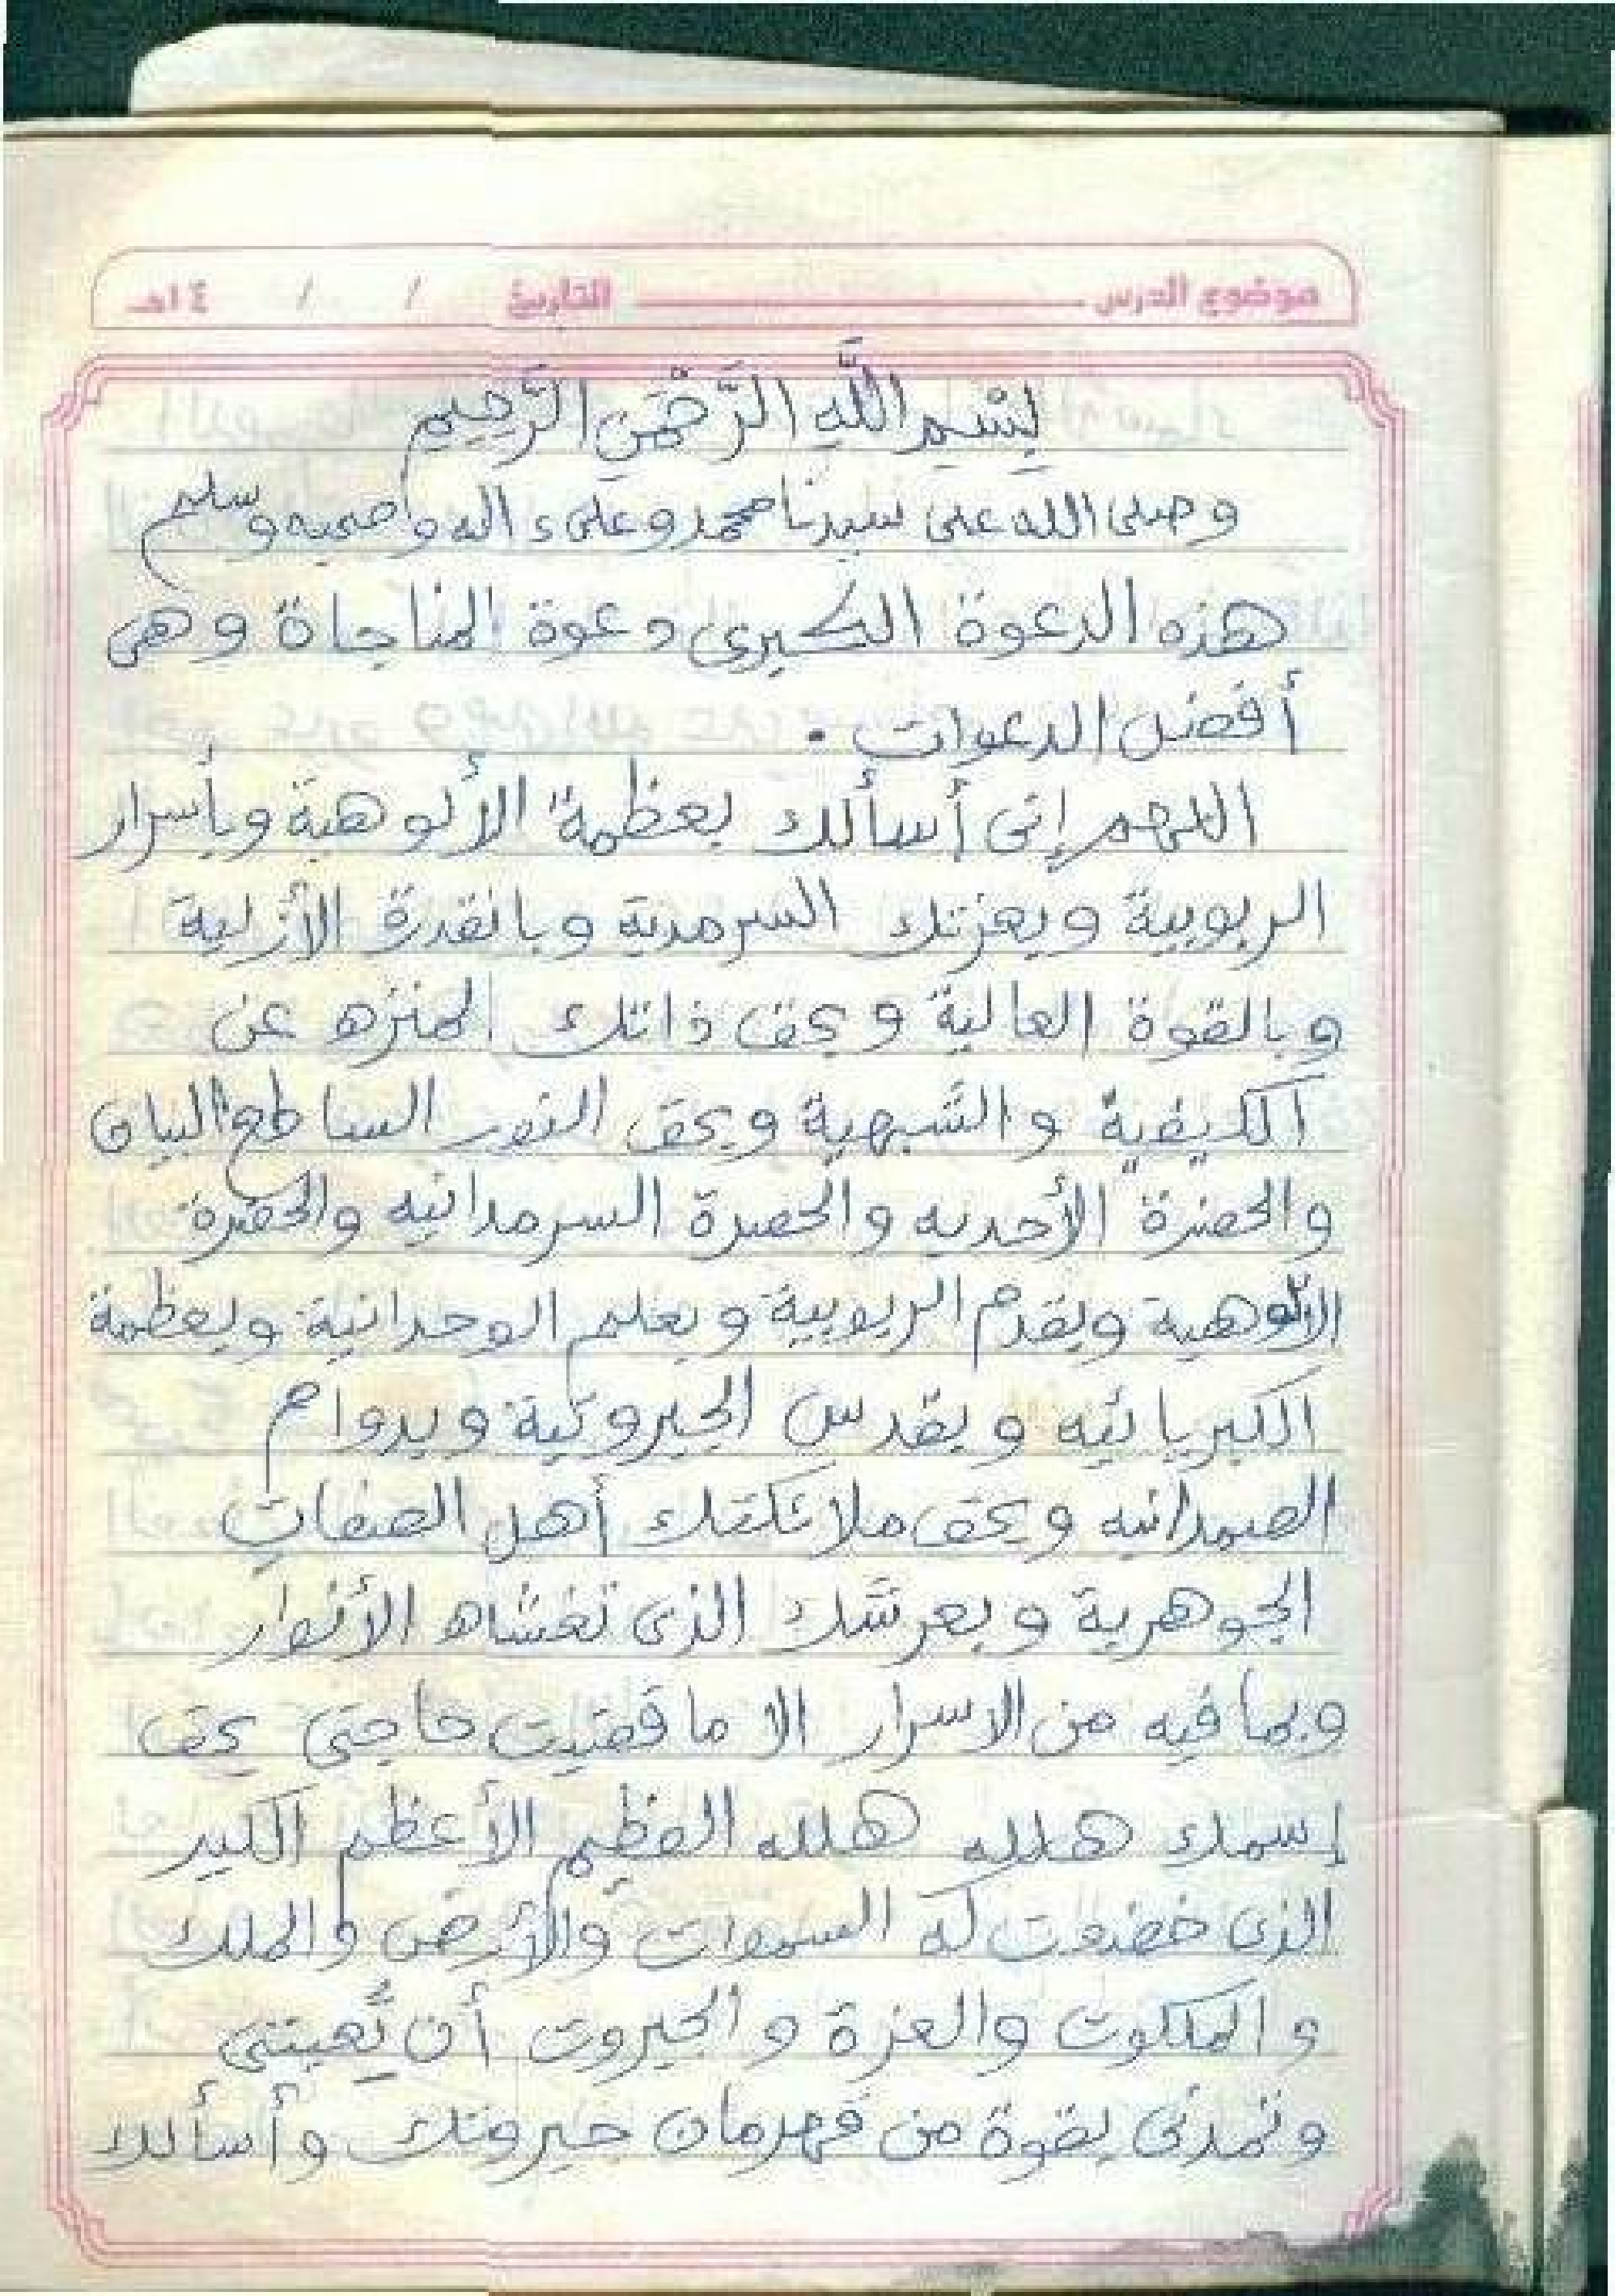 موضوع الدرس ــــــــــــــــ التاريخ / / ١٤هـ
بِسْمِ اللَّهِ الرَّحْمَنِ الرَّحِيمِ
وصلى الله على سيدنا محمد وعلى ءاله واصحبه وسلم
هذه الدعوة الكبرى دعوة المناجاة وهى
أفضل الدعوات .
اللهم إنى أسألك بعظمة الألوهية وبأسرار
الربوبية وبعزتك السرمدية وبالقدرة الأزلية
وبالقوة العالية وبحق ذاتك المنزه عن
الكيفية والشبهية وبحق النور الساطع البيان
والحضرة الأحديه والحضرة السرمدانيه والحضرة
الألوهية وبقدم الربوبية وبعلم الوحدانية وبعظمة
الكبريائيه وبقدس الجبروتية وبدوام
الصمدانيه وبحق ملائكتك أهل الصفات
الجوهرية وبعرشك الذى تغشاه الأنوار
وبما فيه من الاسرار الا ما قضيت حاجتى بحق
إسمك هلله هلله العظيم الأعظم الكبير
الذى خضعت له السموات والأرض والملك
والملكوت والعزة والجبروت أن تُعينى
وتمدنى بقوة من قهرمان جبروتك وأسألك